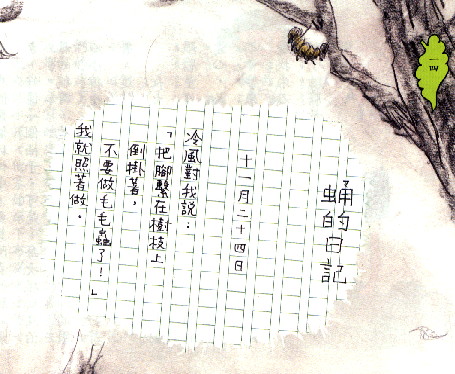 一四
蛹的日記
十一月二十四日
冷風對我說：
「把腳繫在樹枝上
倒掛著，
不要做毛毛蟲了！」
我就照著做。